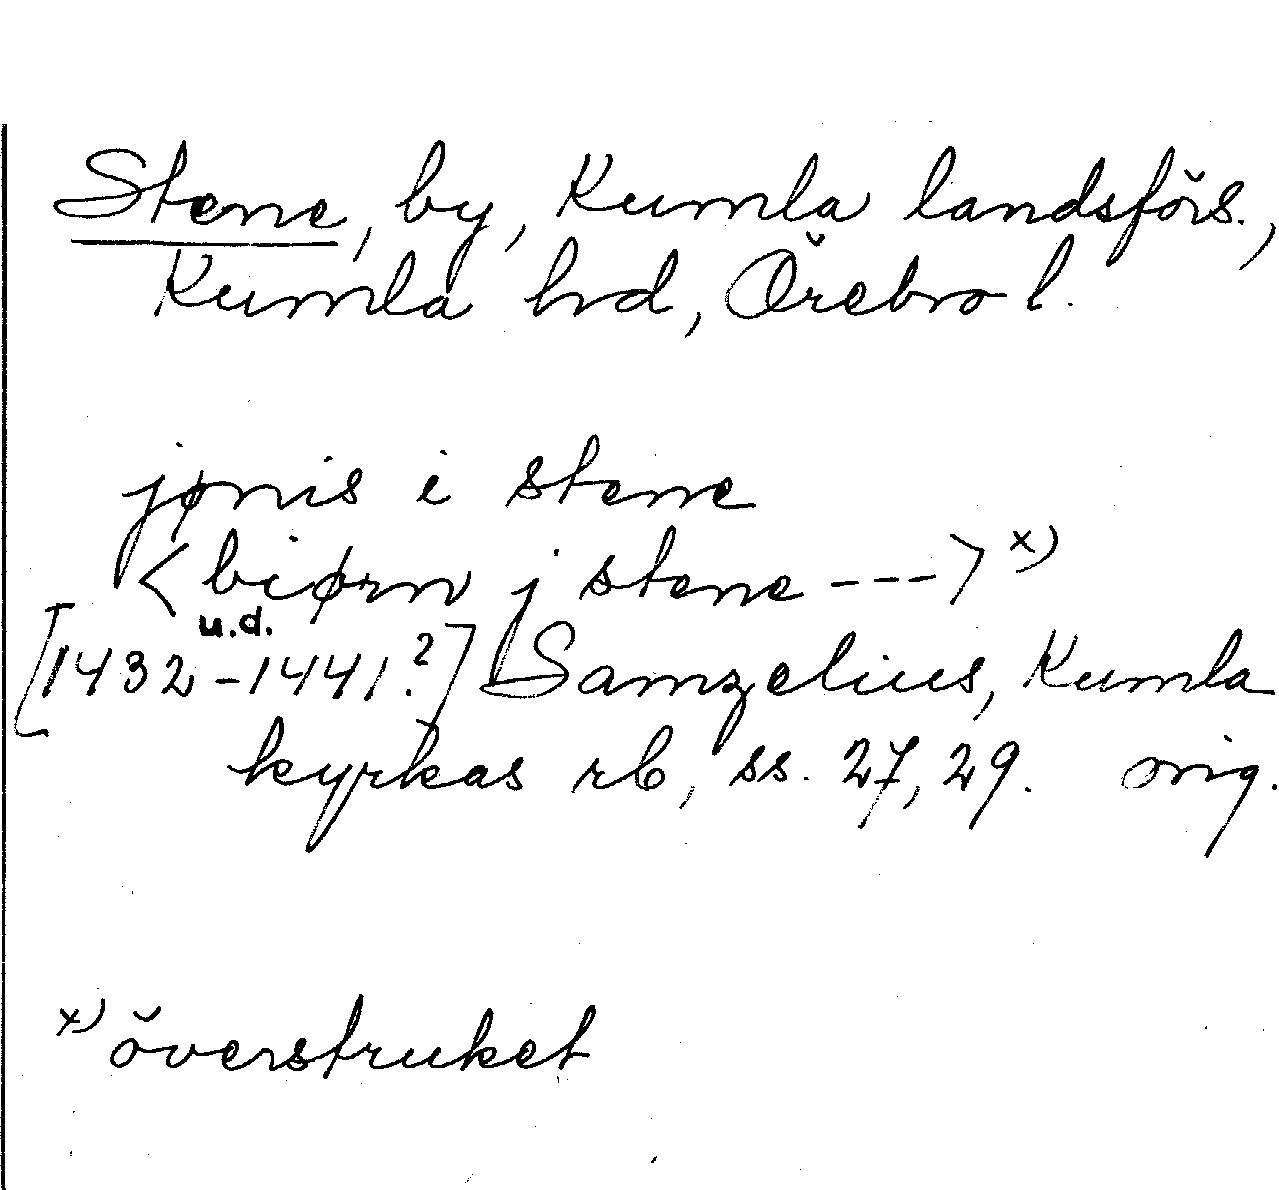 Stene, by, Kumla landsförs.,
Kumla hd, Örebro l.
jønis i stene
<biørn j stene ---> x)
u.d.
[1432-1441?] Samzelius, Kumla
kyrkas rb, ss. 27, 29. orig.
x) överstruket